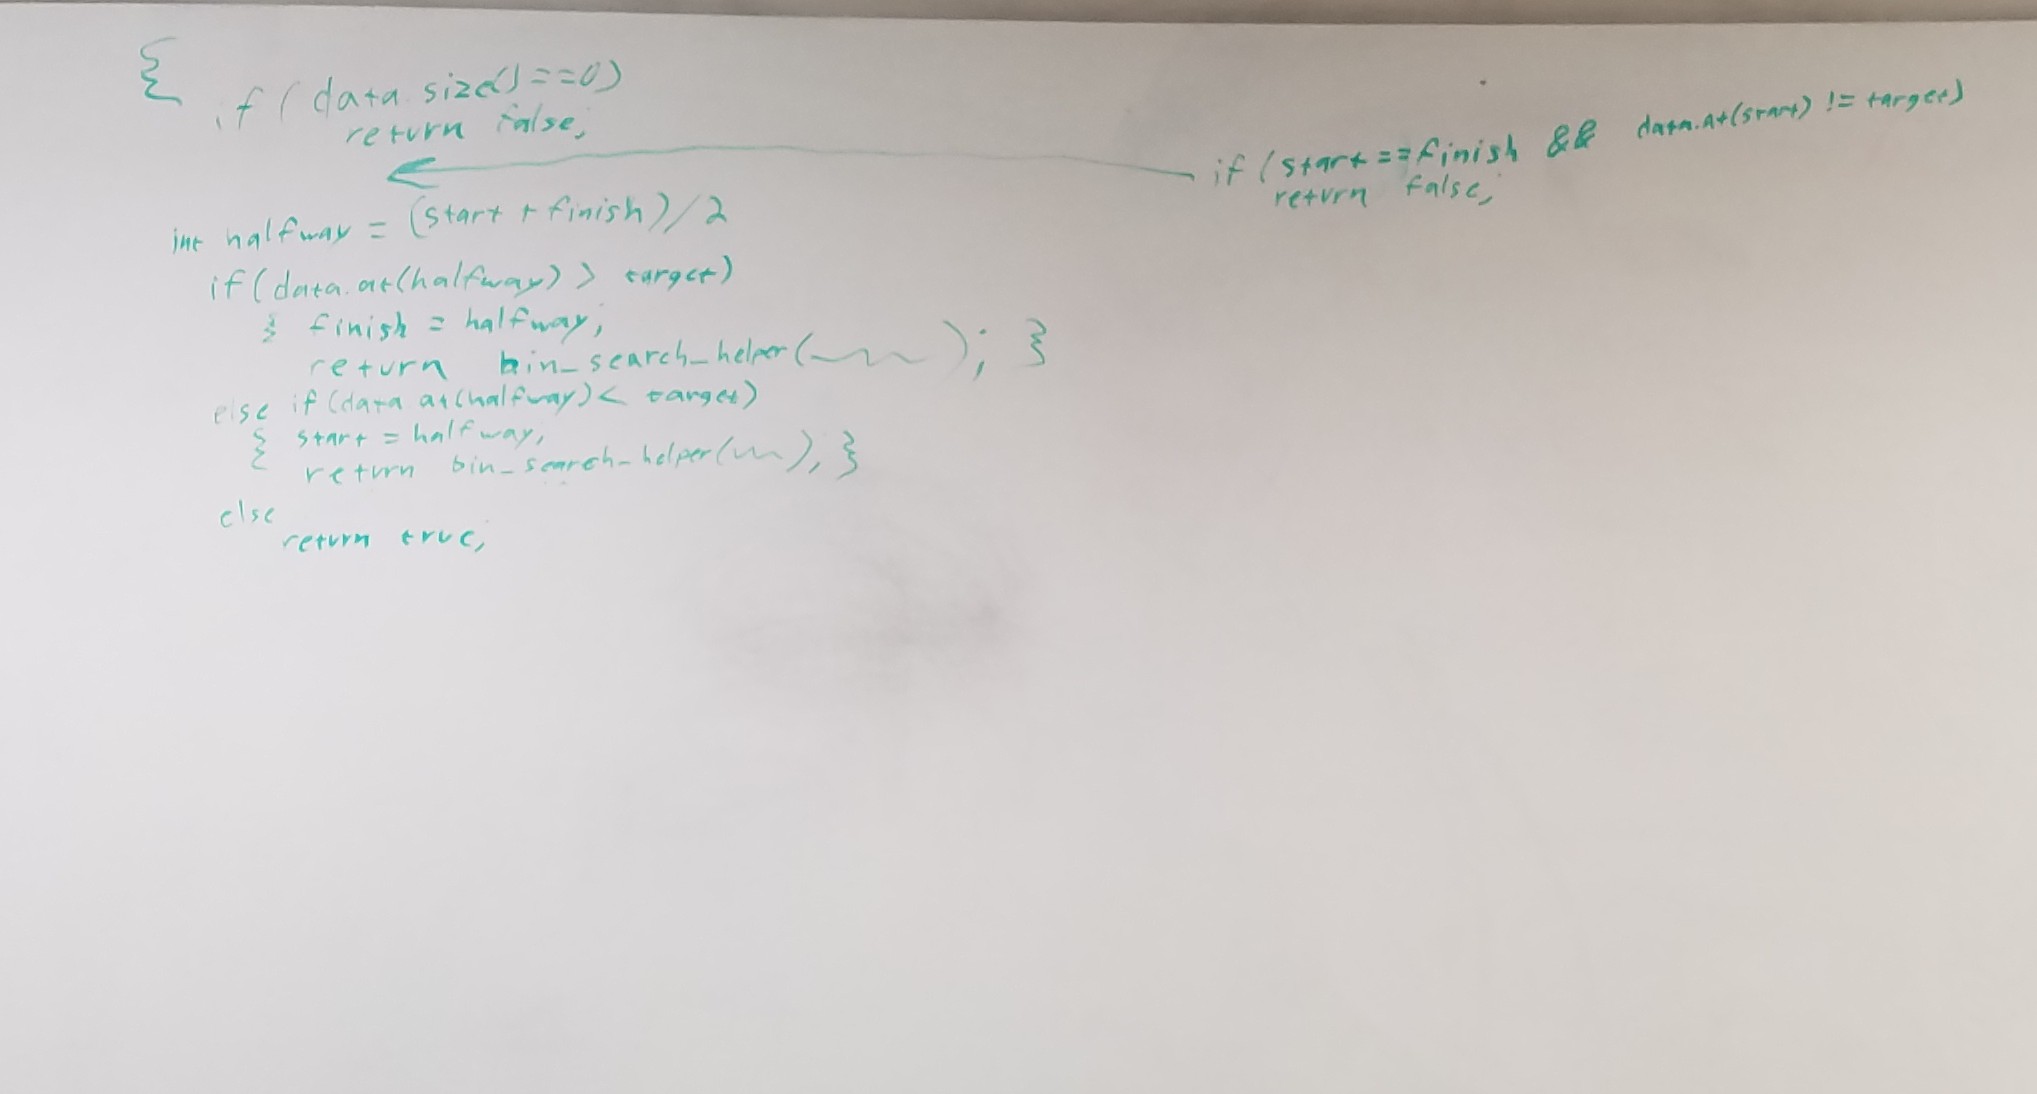 {
if (data.size()==0)
return false;
if (start==finish && data.at(start) != target)
return false;
int halfway = (start + finish)/2
if(data.at(halfway) > target)
{ finish = halfway;
return bin_search_helper( ); }
else if (data.at(halfway) < target)
{ start = halfway;
return bin_search_helper( ); }
else
return true;